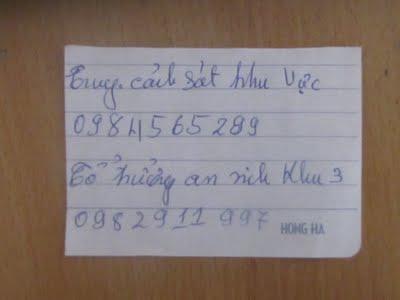 Trung. cảnh sát khu vực
0984565289
Tổ trưởng an ninh Khu 3
0982911997
HONG HA